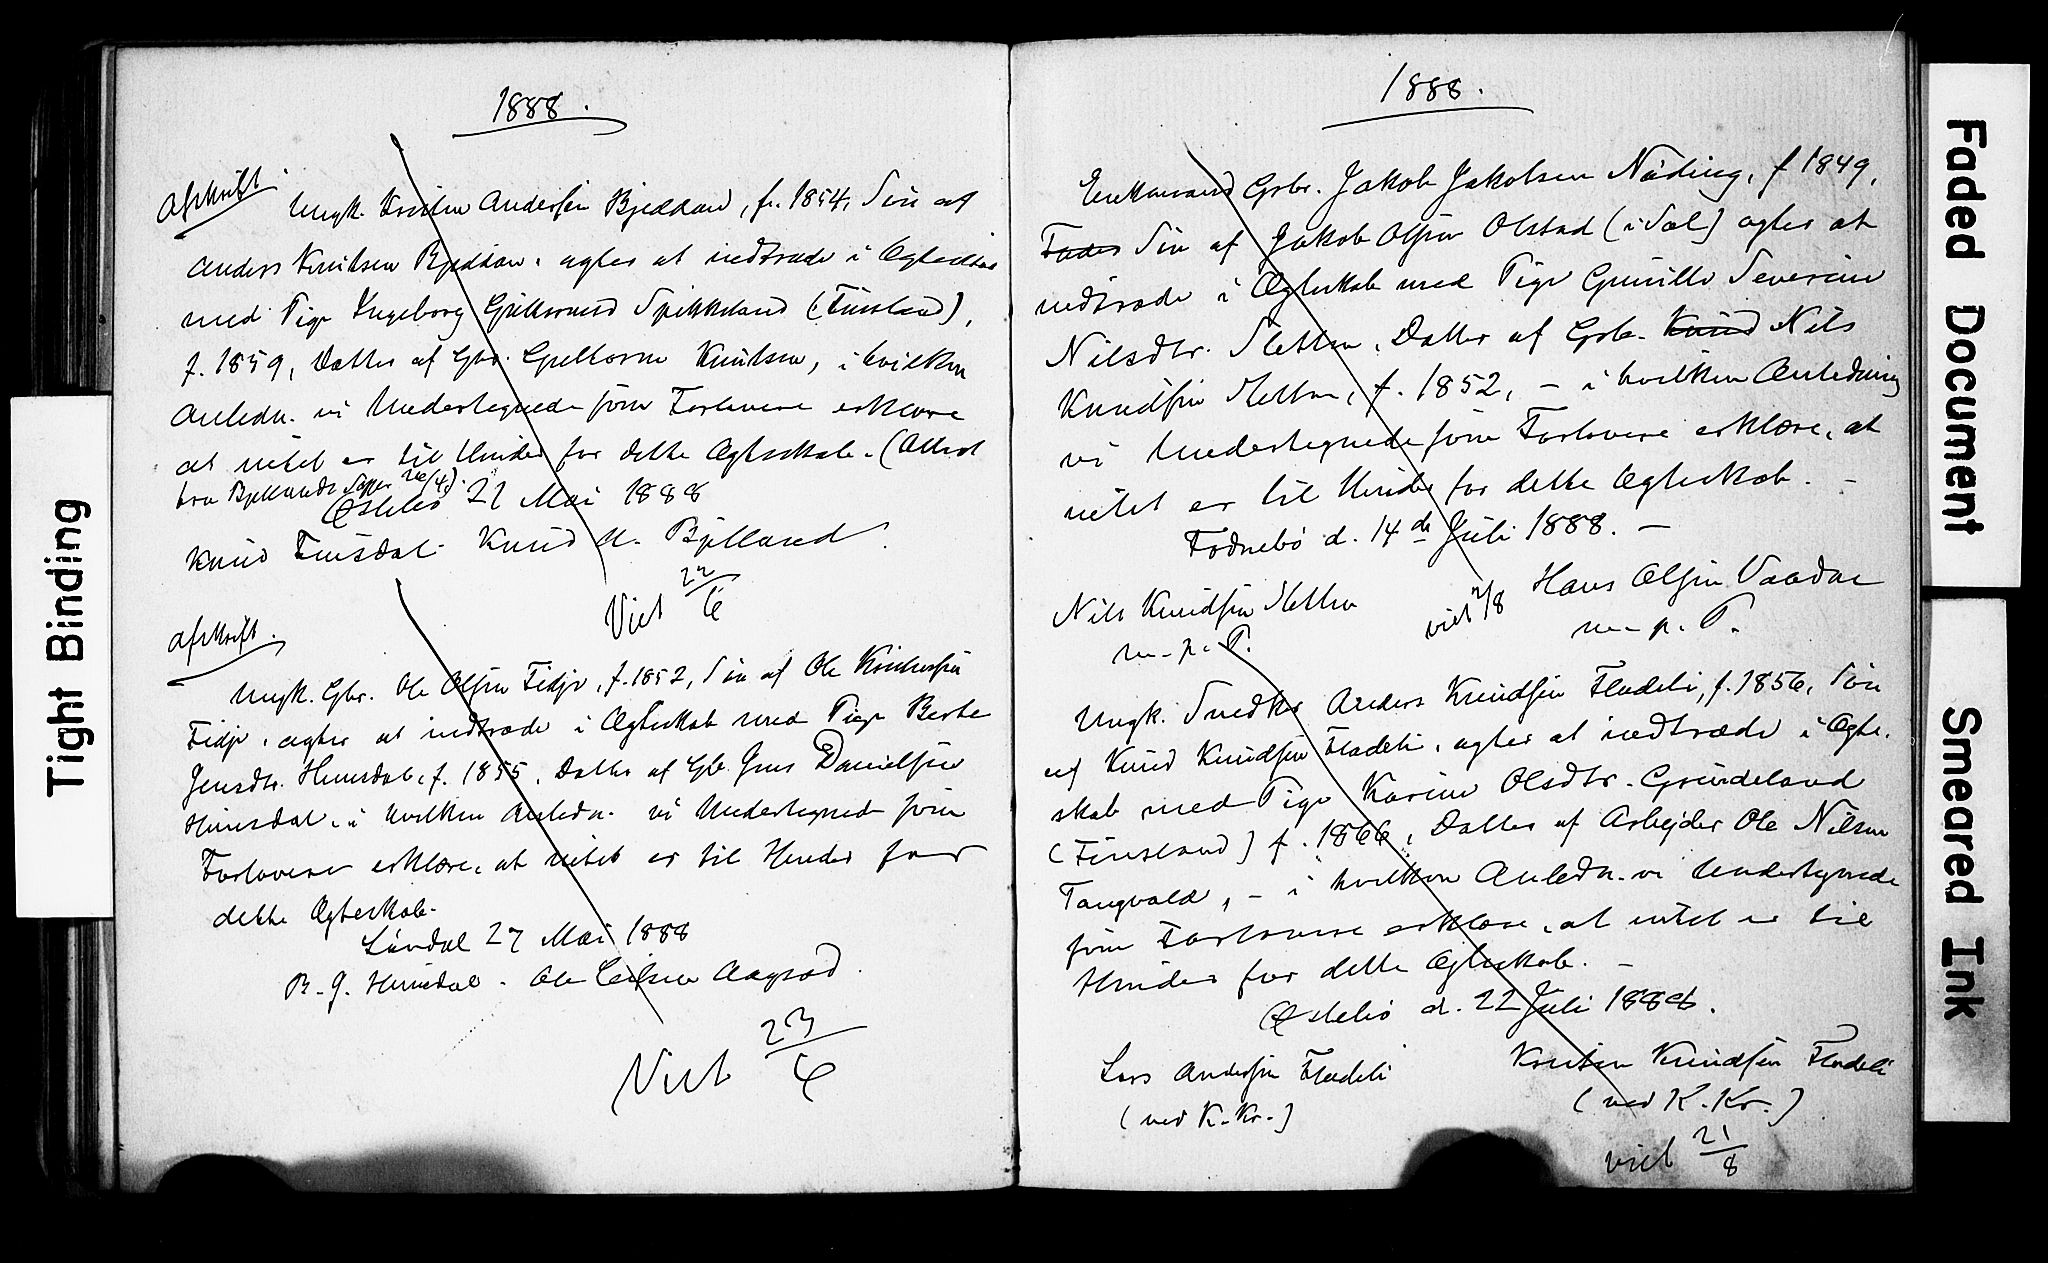 1888.
Afskrift.
Ungk. Kristen Andersen Bjelland, f. 1854, Søn af
Anders Knutsen Bjelland, agter at indtræde i Ægteskab
med Pige Ingeborg Guttormsd Spikkeland (Finsland),
f. 1859, Datter af Gbr. Guttorm Knutsen, i hvilken
Anledn. vi Undertegnede som Forlovere erklære
at intet er til Hinder for dette Ægteskab. (Attest
fra Bjellands Sgpr 26/4).
Østebø 21 Mai 1888
Knud Finsdal. Knud A. Bjelland.
Viet 22/6
Afskrift.
Ungk. Gbr. Ole Olsen Fidje, f. 1852, Søn af Ole Kristensen
Fidje, agter at indtræde i Ægteskab med Pige Berte
Jensdtr. Hunsdal, f. 1855, Datter af Gb. Jens Danielsen
Hunsdal, i hvilken Anledn. vi Undertegnede som
Forlovere erklære, at intet er til Hinder for
dette Ægteskab.
Løvdal 27 Mai 1888
B. J. Hunsdal. Ole Aagsød.
Viet 23/6
1888.
Enkemand Gbr. Jakob Jakobsen Nøding, f 1849,
Fader Søn af Jakob Olsen Olstad (i Søl) agter at
indtræde i Ægteskab med Pige Gunille Severine
Nilsdtr. Sletten, Datter af Gbr. Knud Nils
Knudsen Sletten, f. 1852, – i hvilken Anledning
vi Undertegnede som Forlovere erklære, at
intet er til Hinder for dette Ægteskab. –
Fodnebø d. 14de Juli 1888. –
Nils Knudsen Sletten Hans Olsen Vaadne
m. p. P. viet 2/8 m. p. P.
Ungk. Snedker Anders Knudsen Fladeli, f. 1856, Søn
af Knud Knudsen Fladeli, agter at indtræde i Ægte-
skab med Pige Karine Olsdtr. Grundeland
(Finsland) f. 1866, Datter af Arbejder Ole Nilsen
Tangvald, – i hvilken Anledn. vi Undertegnede
som Forlovere erklære, at intet er til
Hinder for dette Ægteskab. –
Østebø d. 22 Juli 1888.
Lars Andersen Fladeli Kristen Knudsen Fladeli
(ved K. Kr.) (ved K. Kr.)
viet 21/8
Tight Binding
Faded Document
Smeared Ink